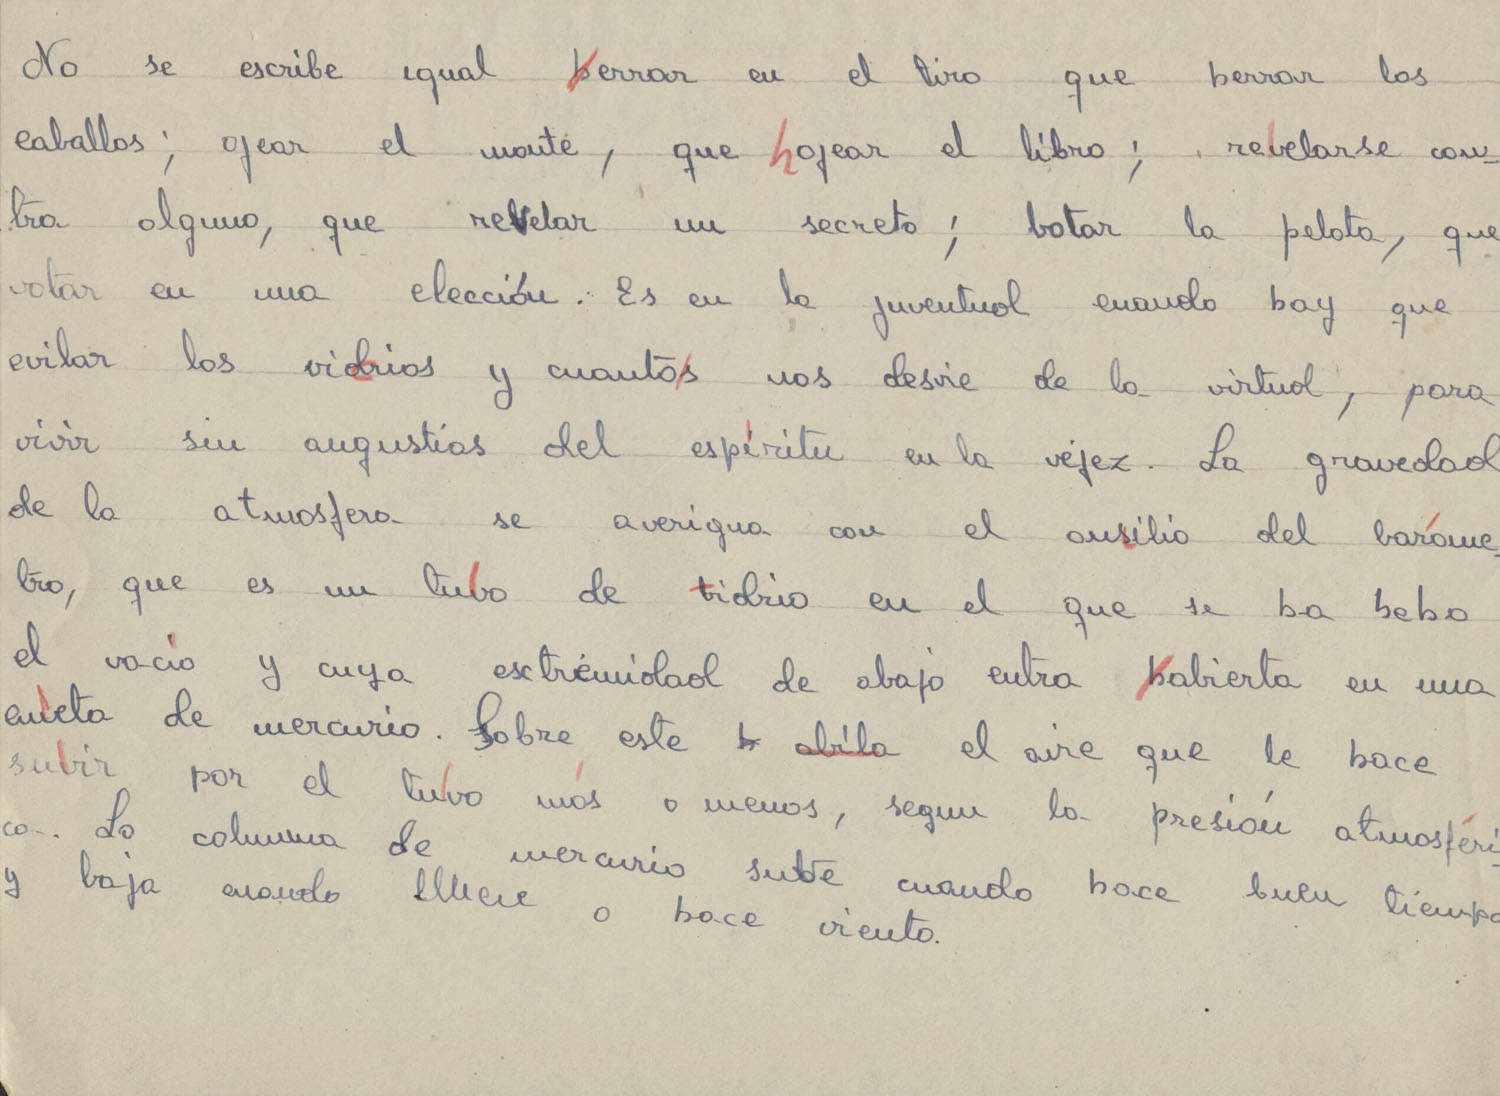 No se escribe igual herrar en el tiro que herrar los
caballos; ojear el monte, que hojear el libro; rebelarse con-
tra alguno, que revelar un secreto; botar la pelota, que
votar en una elección. Es en la juventud cuando hay que
evitar los vidrios y cuantos nos desvie de la virtud, para
vivir sin angustias del espíritu en la vejez. La gravedad
de la atmosfera se averigua con el ausilio del baróme-
tro, que es un tubo de vidrio en el que se ha hebo
el vacío y cuya extremidad de abajo entra habierta en una
cubeta de mercurio. Sobre este h abila el aire que le hace
subir por el tubo más o menos, segun la presión atmosféri-
ca. La columna de mercurio sube cuando hace buen tiempo
y baja cuando llueve o hace viento.